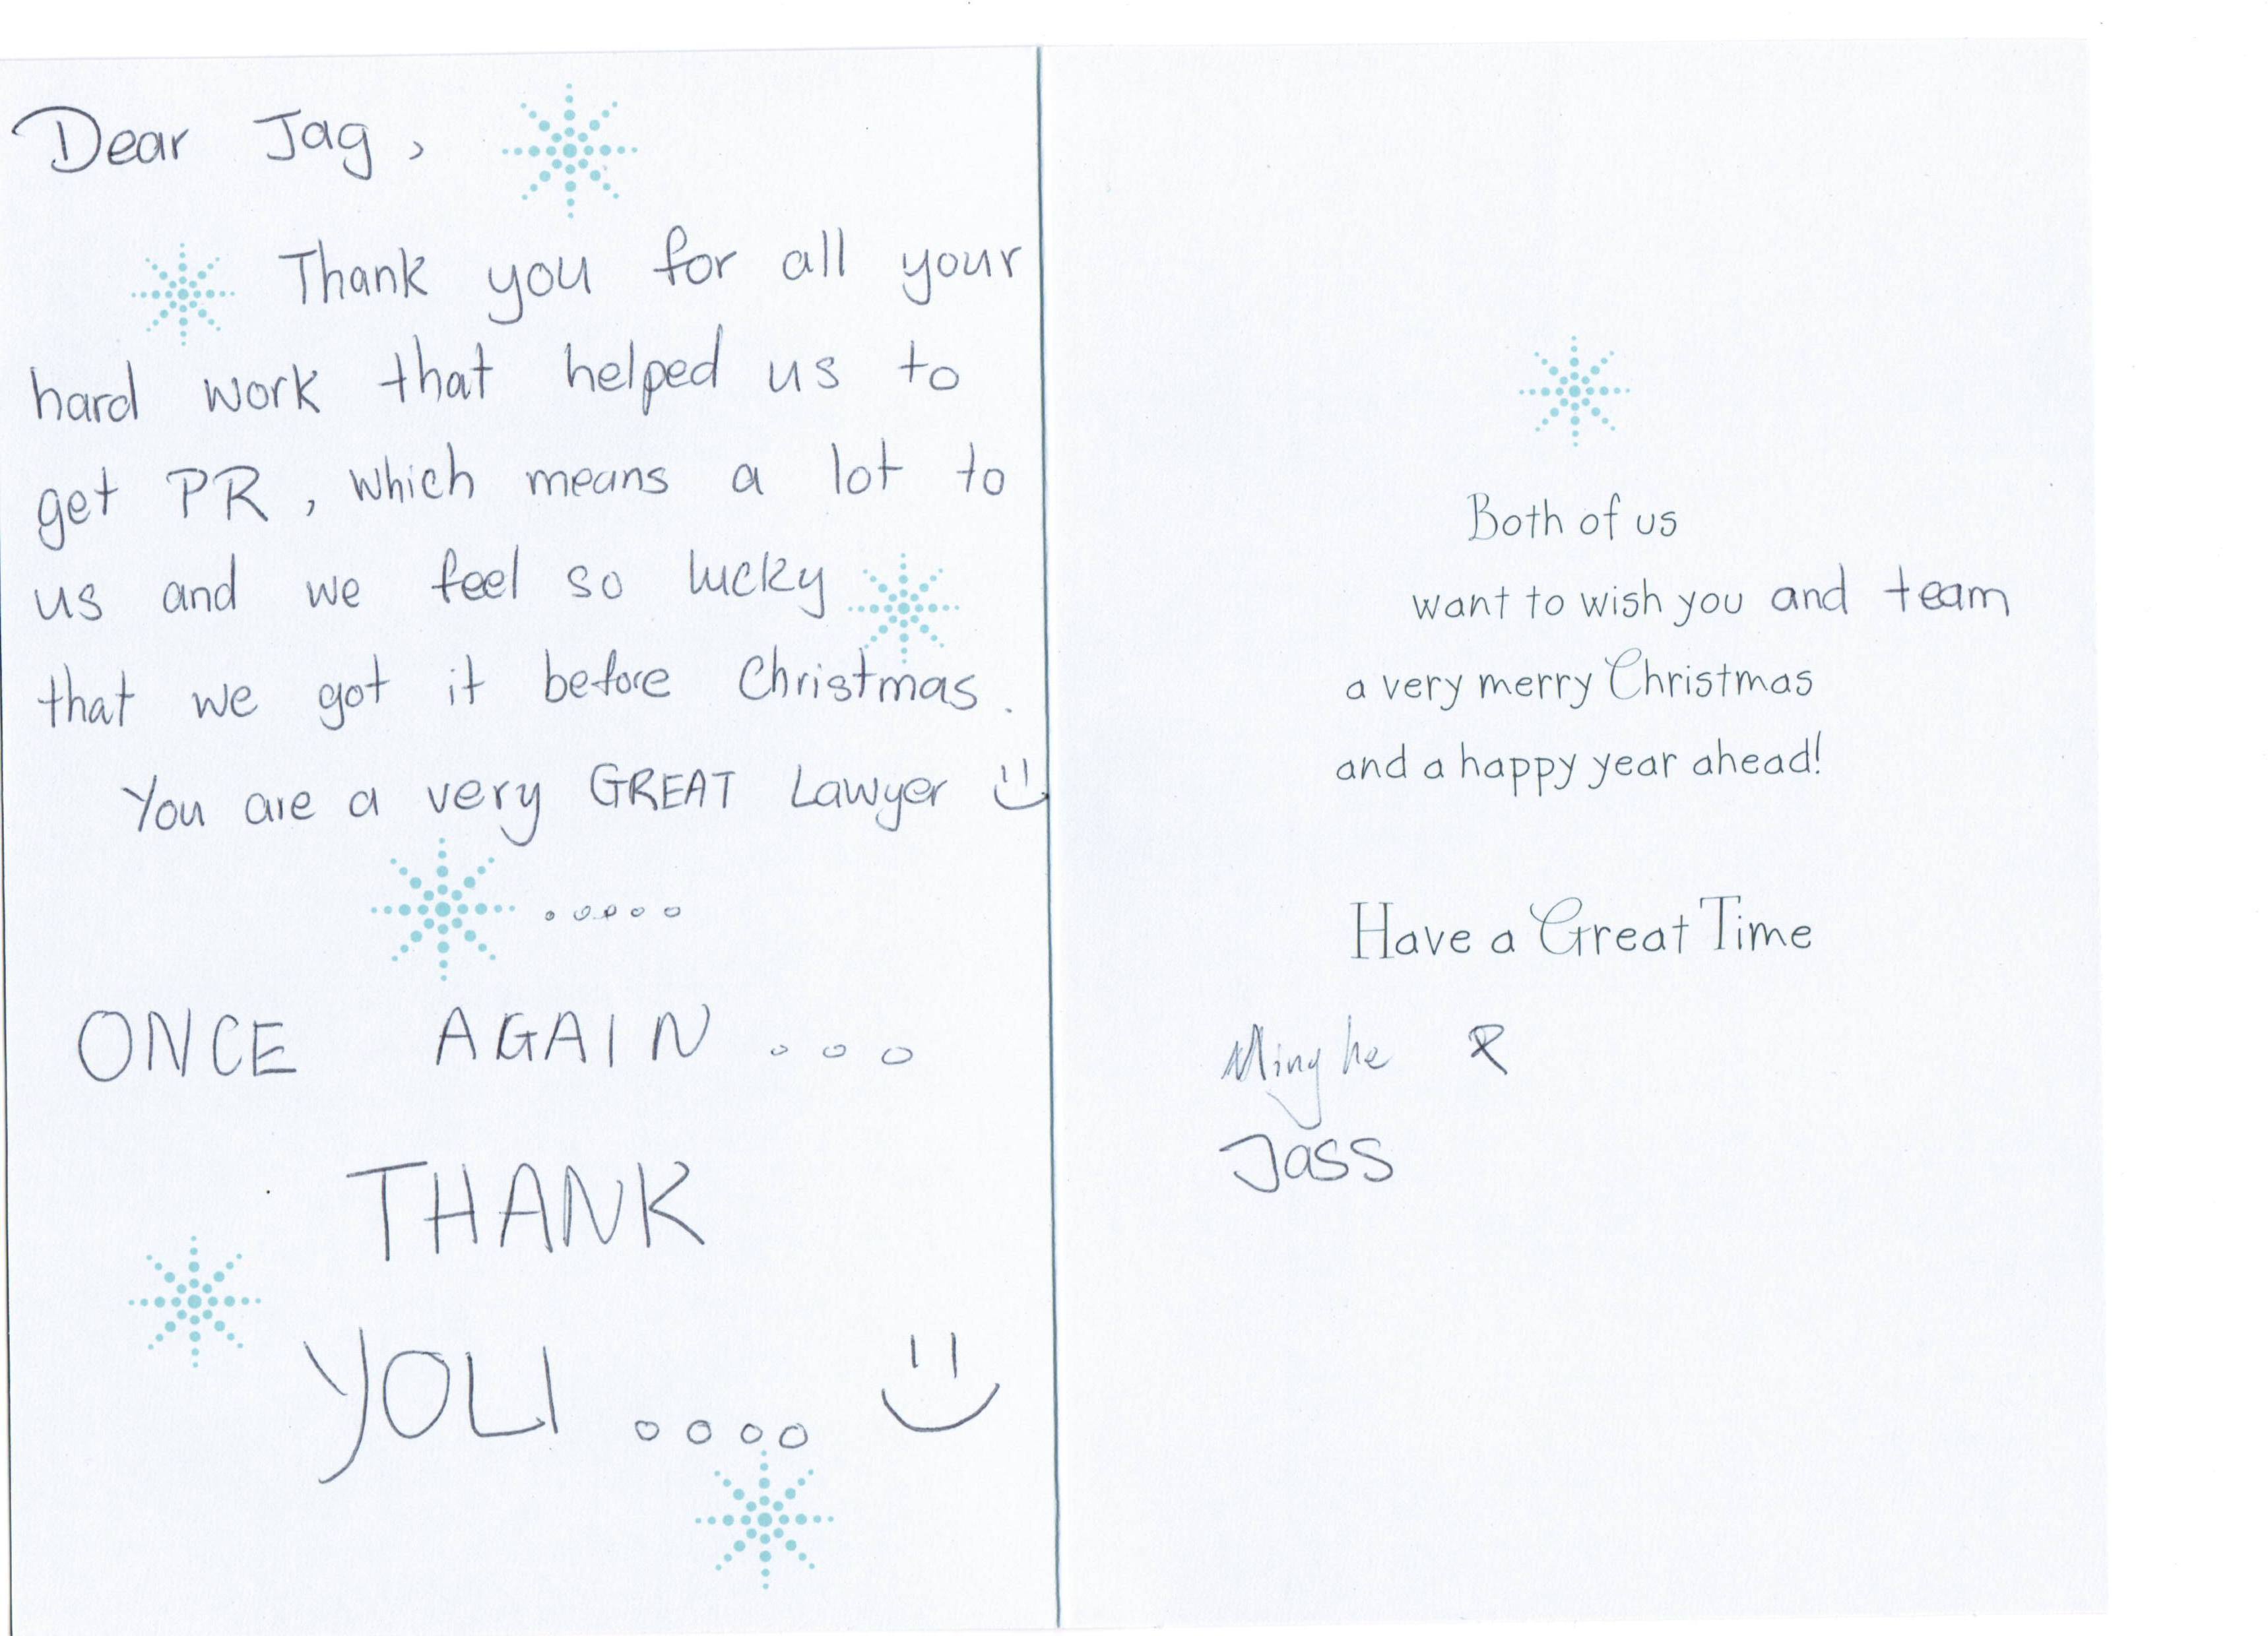 Dear Jag,
Thank you for all your
hard work that helped us to
get PR, which means a lot to
us and we feel so lucky
that we got it before Christmas.
You are a very GREAT Lawyer :)
.....
ONCE AGAIN...
THANK
YOU.... :)
Both of us
want to wish you and team
a very merry Christmas
and a happy year ahead!
Have a Great Time
Minghe &
Jass